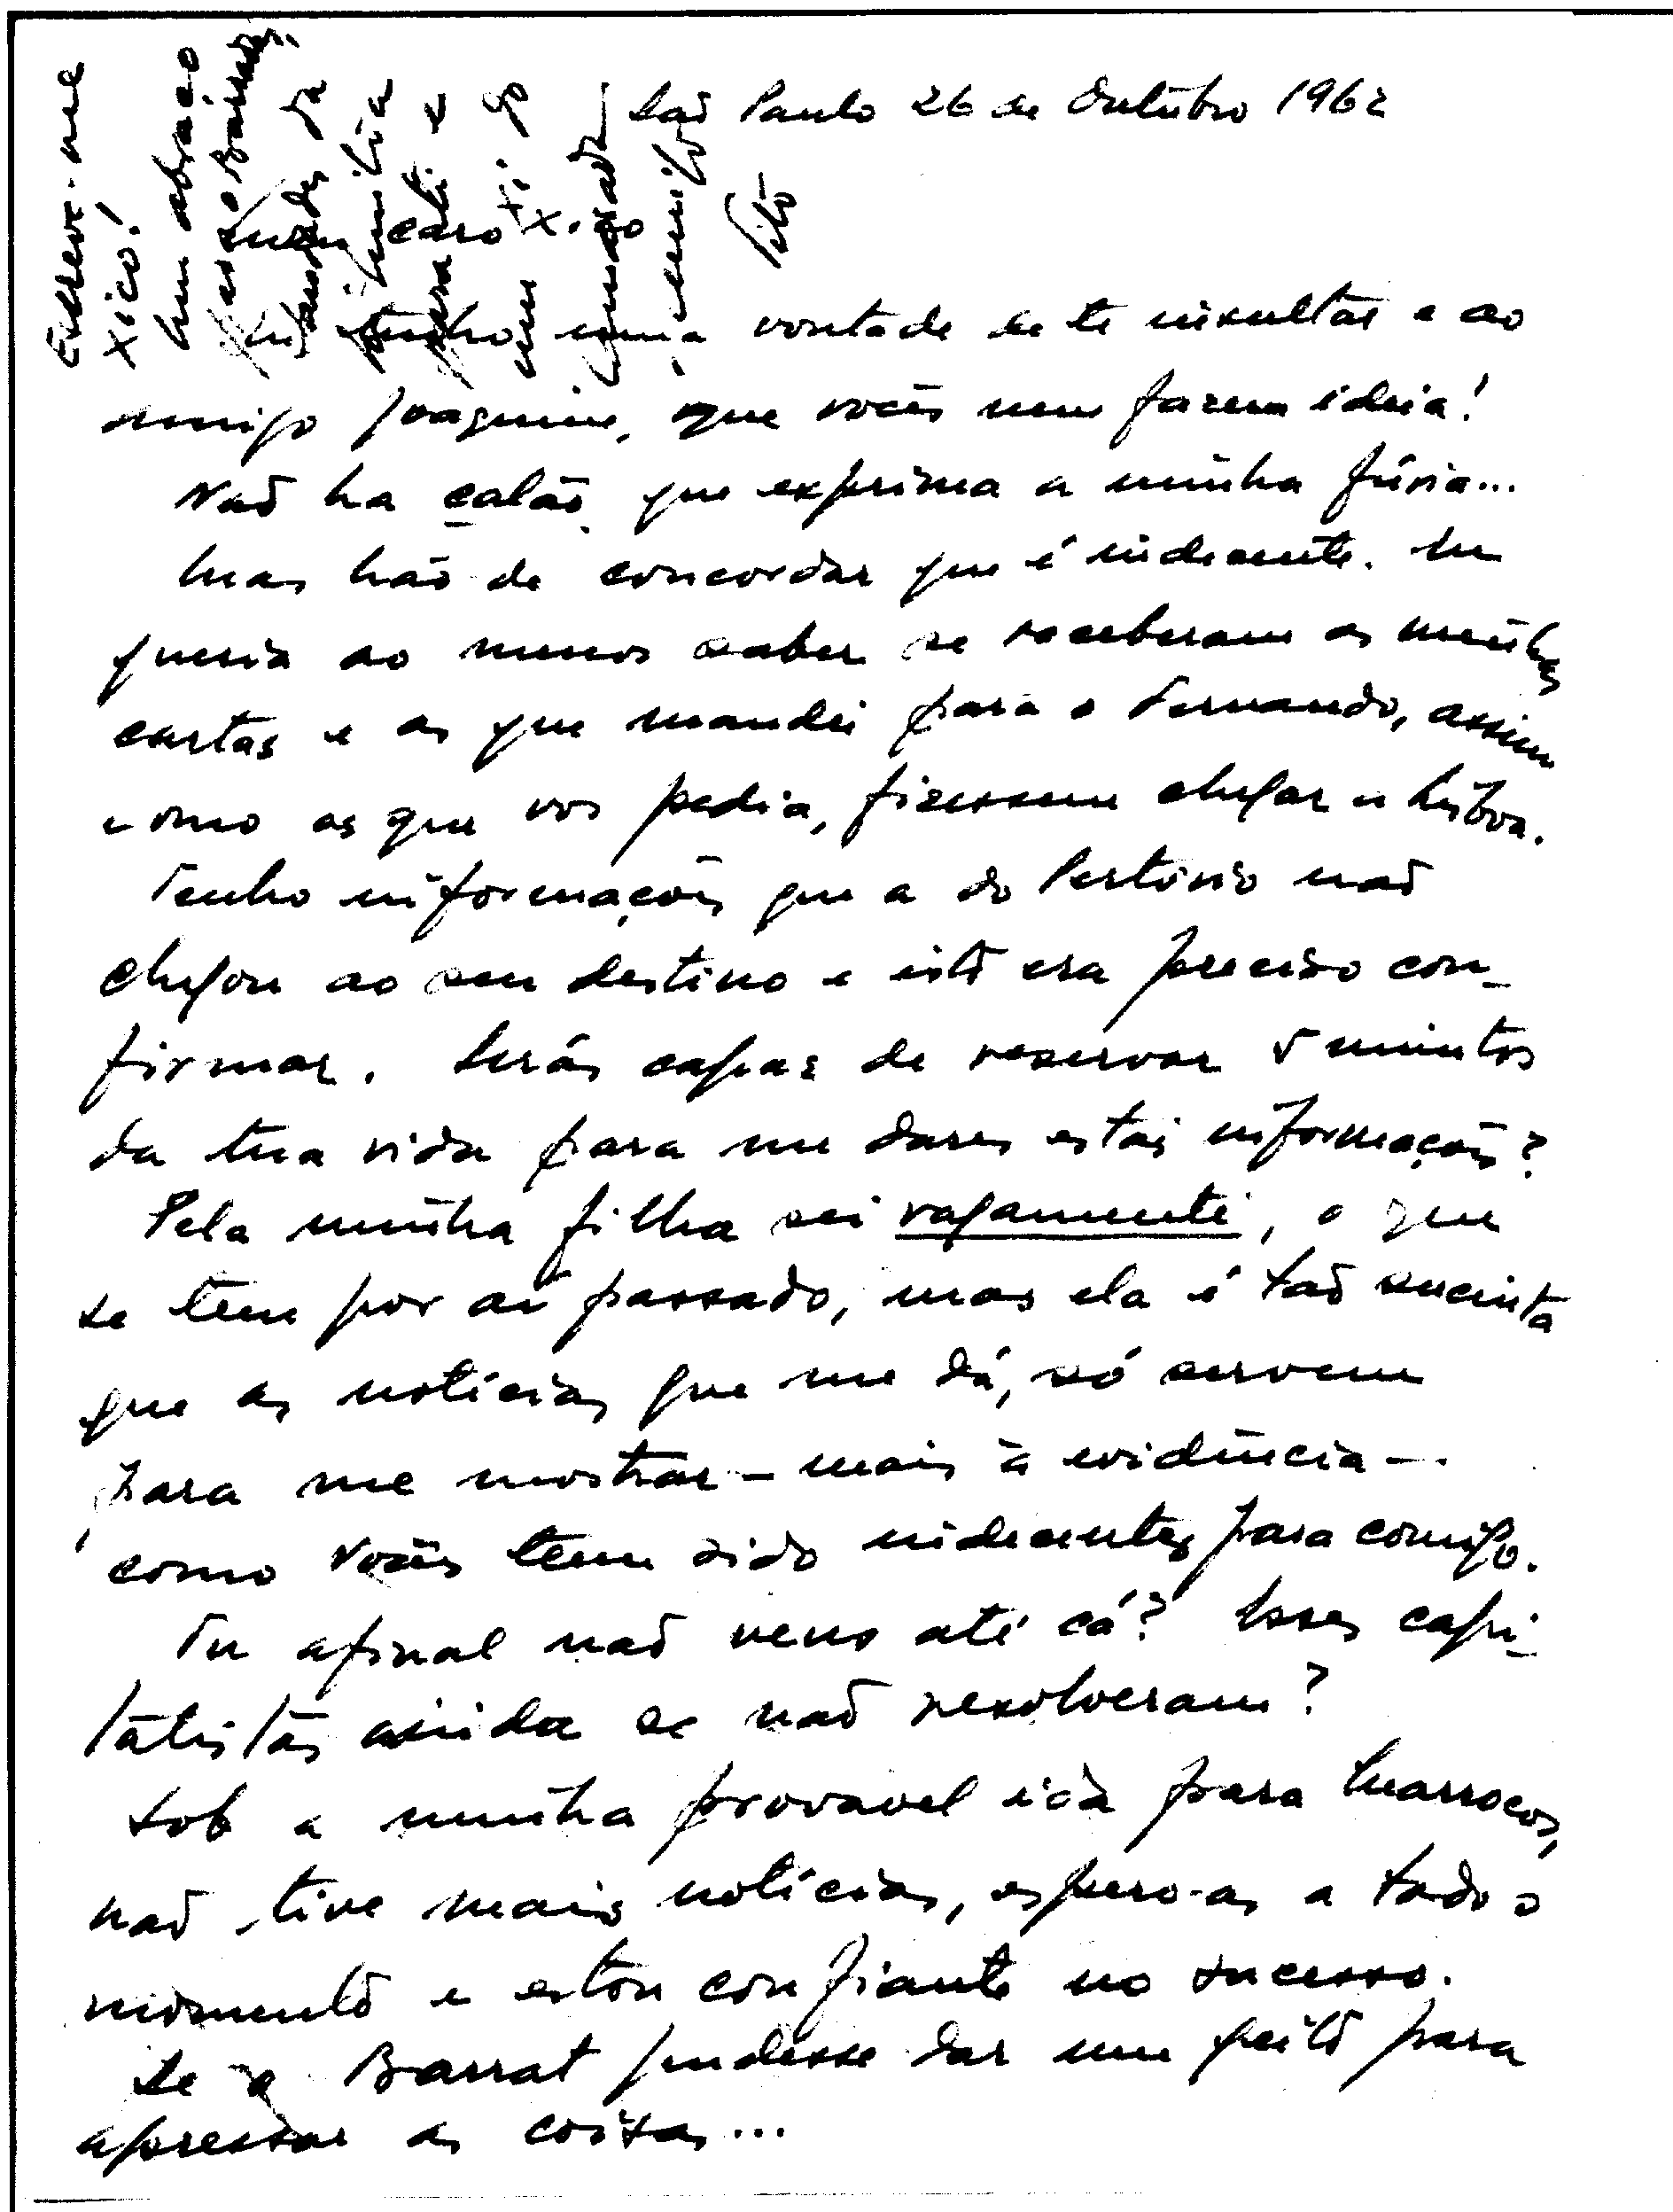 São Paulo 26 de Outubro 1962
Meu caro Xico
Tenho uma vontade de te insultar e ao
amigo Joaquim, que vocês nem fazem ideia!
Não ha calão que exprima a minha fúria...
Mas hão de concordar que é indecente. Eu
queria ao menos saber se receberam as minhas
cartas e as que mandei para o Fernando, assim
como as que vos pedia, fizessem chegar a Lisboa.
Tenho informações que a do Pertónio não
chegou ao seu destino e isto era preciso con-
firmar. Serás capaz de reservar 5 minutos
da tua vida para me dares estas informações?
Pela minha filha sei vagamente, o que
se tem por aí passado, mas ela é tão sucinta
que as notícias que me dá, só servem
para me mostrar - mais à evidência -
como vocês tem sido indecentes para comigo.
Tu afinal não vens até cá? Esses capi-
talistas ainda se não resolveram?
Sob a minha provavel ida para Marrocos,
não tive mais notícias, espero-as a todo o
momento e estou confiante no sucesso.
Se o Barrat pudesse dar um geito para
apressar as coisas...
Escreve-me
Xico!
Um abraço
saudades da
família
para ti e
um Xi do
amigo
Tito